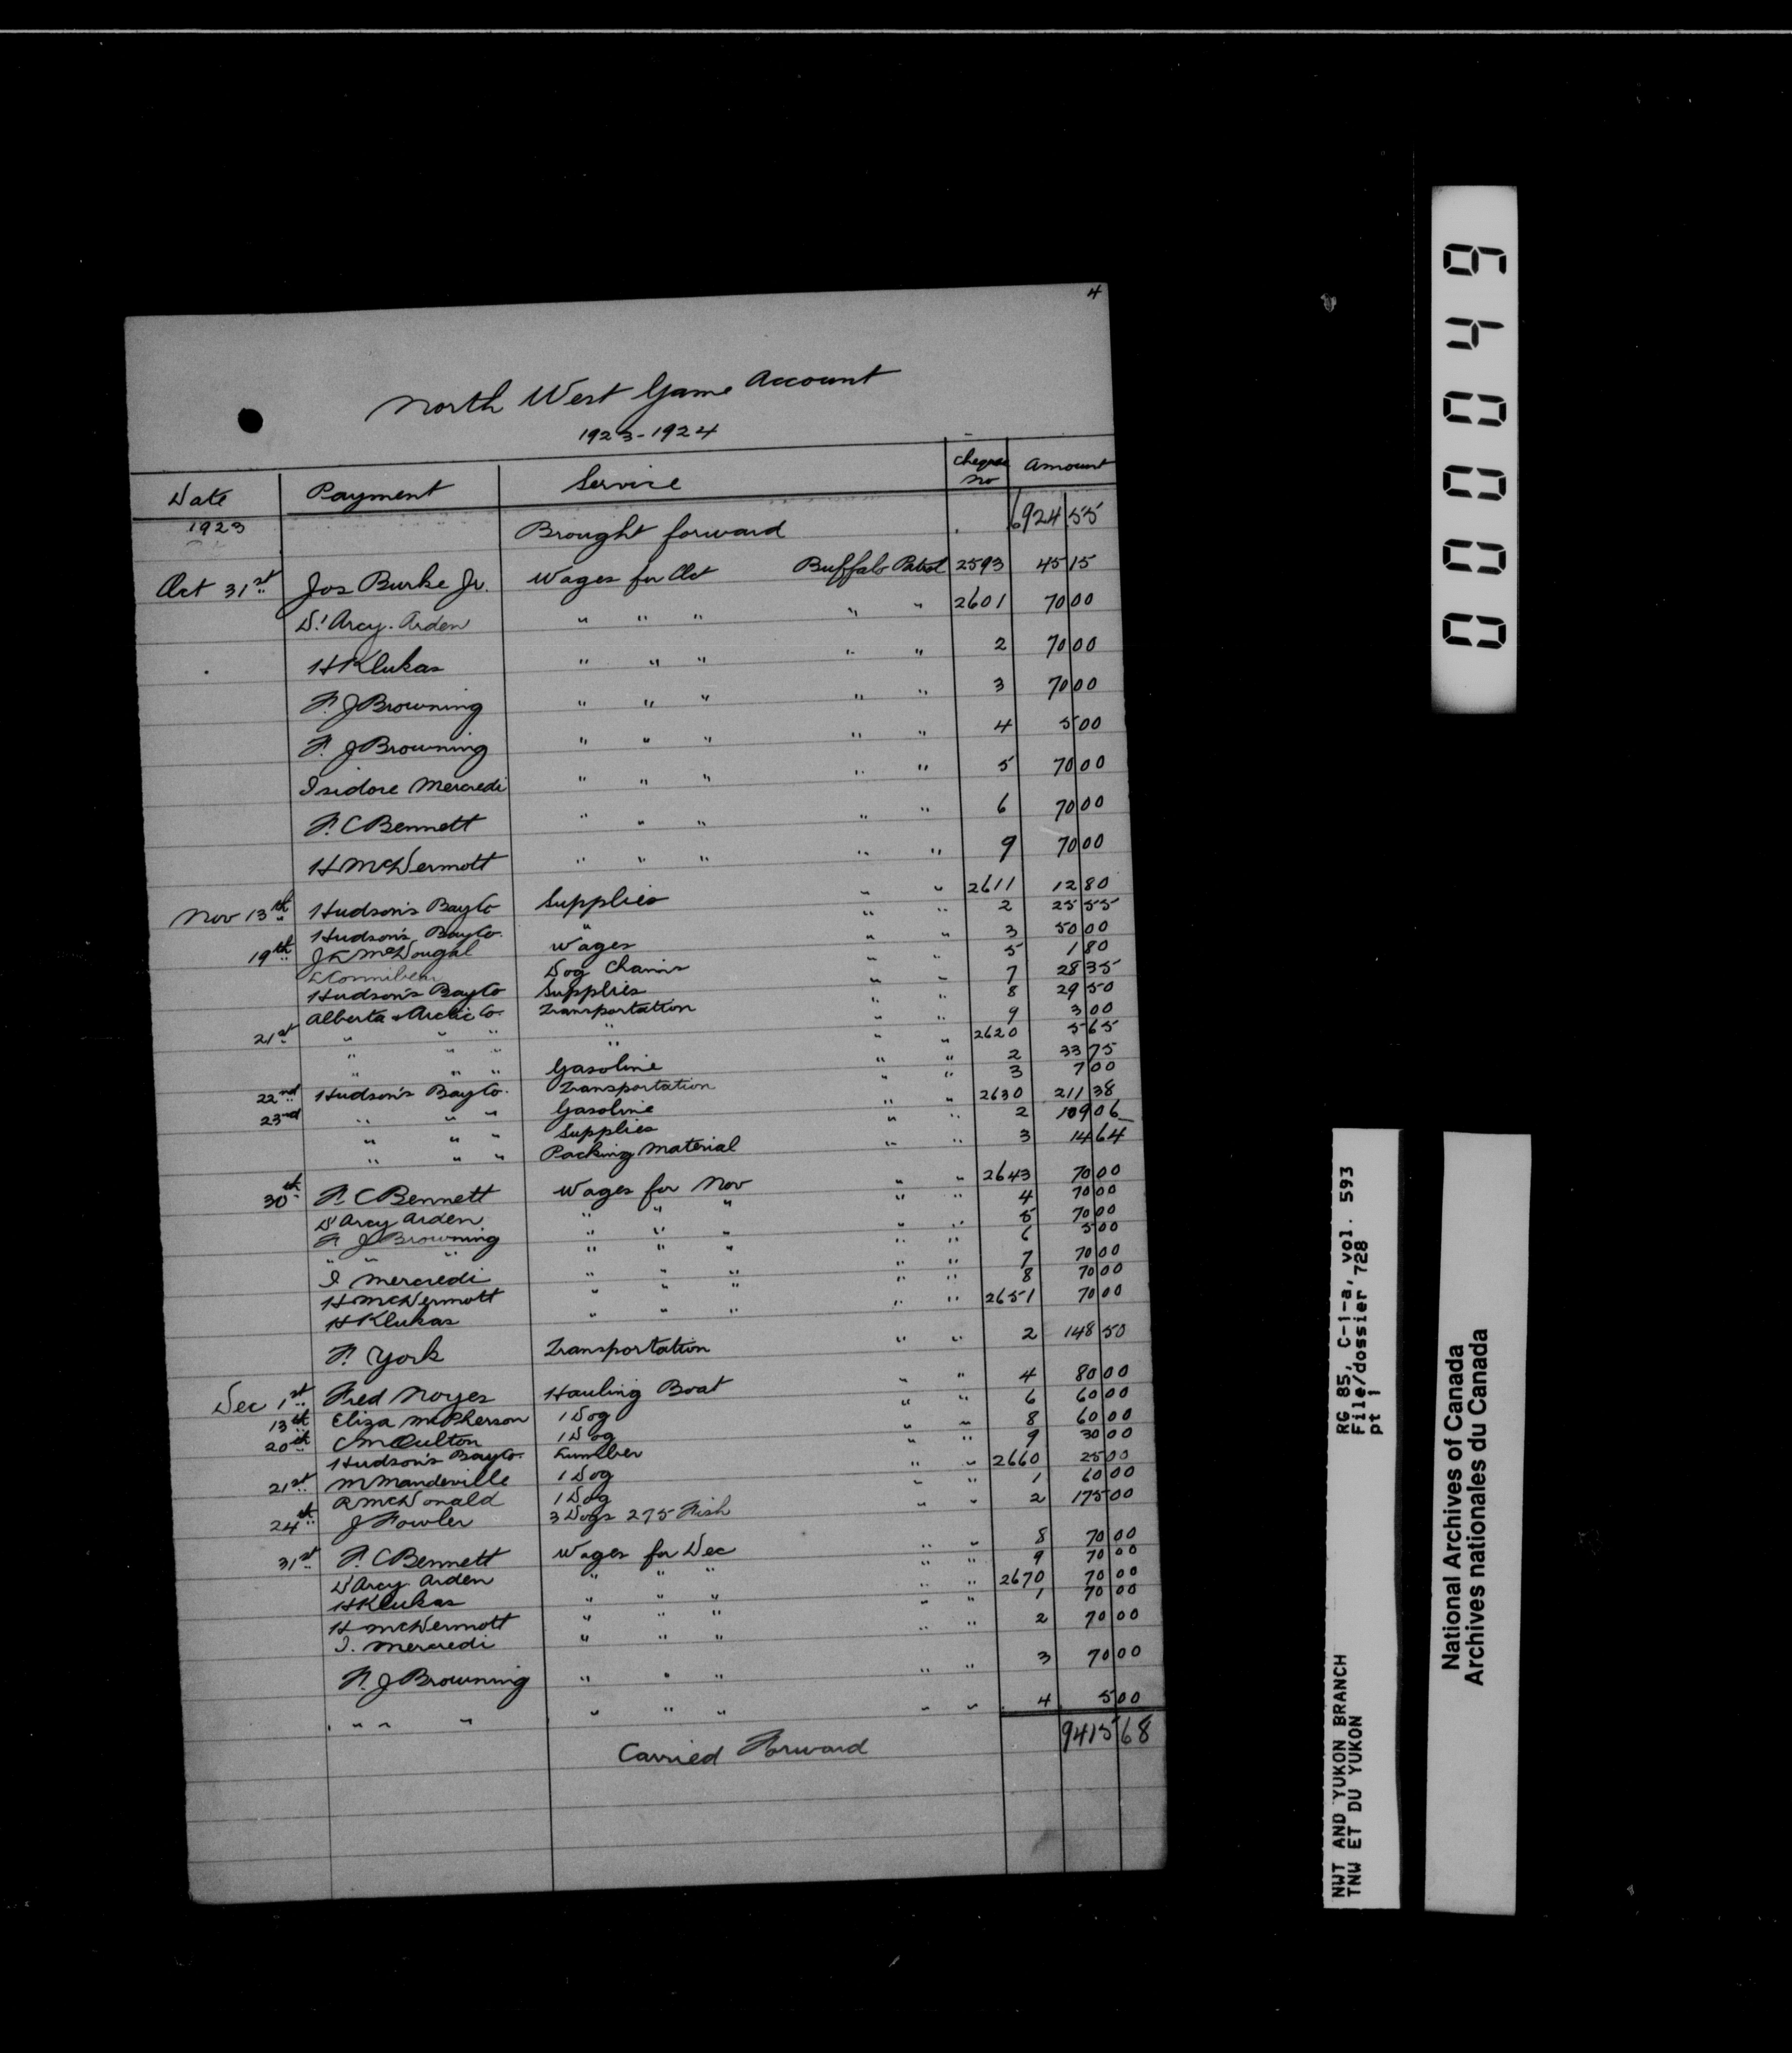 4
North West Game Account
1923-1924
Date Payment Service Cheque No Amount
1923 Brought forward 6924 55
Oct 31st Jos Burke Jr. Wages for Oct Buffalo Patrol 2593 45 15
D'Arcy. Arden " " " " " 2601 70 00
H Klukas " " " " " 2 70 00
F. J Browning " " " " " 3 70 00
F. J Browning " " " " " 4 5 00
Isidore Mercredi " " " " " 5 70 00
F. C Bennett " " " " " 6 70 00
H McDermott " " " " " 9 70 00
Nov 13th Hudson's Bay Co Supplies " " 2611 12 80
Hudson's Bay Co. " " " 2 25 55
19th J A McDougal Wages " " 3 50 00
Dog Chains " " 5 1 80
Hudson's Bay Co Supplies " " 7 28 35
Alberta & Arctic Co. Transportation " " 8 29 50
21st " " " " " " 9 3 00
" " " " " 2620 5 65
" " " Gasoline " " 2 33 75
22nd Hudson's Bay Co. Transportation " " 3 7 00
23rd " " " Gasoline " " 2630 211 38
" " " Supplies " " 2 109 06
" " " Packing Material " " 3 14 64
30th F. C Bennett Wages for Nov " " 2643 70 00
D'Arcy Arden " " " " " 4 70 00
F J Browning " " " " " 5 70 00
" " " " " " " " 6 5 00
I Mercredi " " " " " 7 70 00
H McDermott " " " " " 8 70 00
H Klukas " " " " " 2651 70 00
F. York Transportation " " 2 148 50
Dec 1st Fred Noyes Hauling Boat " " 4 80 00
13th Eliza McPherson 1 Dog " " 6 60 00
20th C M Oulton 1 Dog " " 8 60 00
Hudson's Bay Co. Lumber " " 9 30 00
21st M Mandeville 1 Dog " " 2660 25 00
R McDonald 1 Dog " " 1 60 00
24th J Fowler 3 Dogs 275 Fish " " 2 175 00
31st F. C Bennett Wages for Dec " " 8 70 00
D'Arcy Arden " " " " " 9 70 00
H Klukas " " " " " 2670 70 00
H McDermott " " " " " 1 70 00
I. Mercredi " " " " " 2 70 00
F. J Browning " " " " " 3 70 00
" " " " " " " " 4 5 00
Carried Forward 9415 68
000049
RG 85, C-1-a, vol. 593
File/dossier 728
pt 1
NWT AND YUKON BRANCH
TNW ET DU YUKON
National Archives of Canada
Archives nationales du Canada